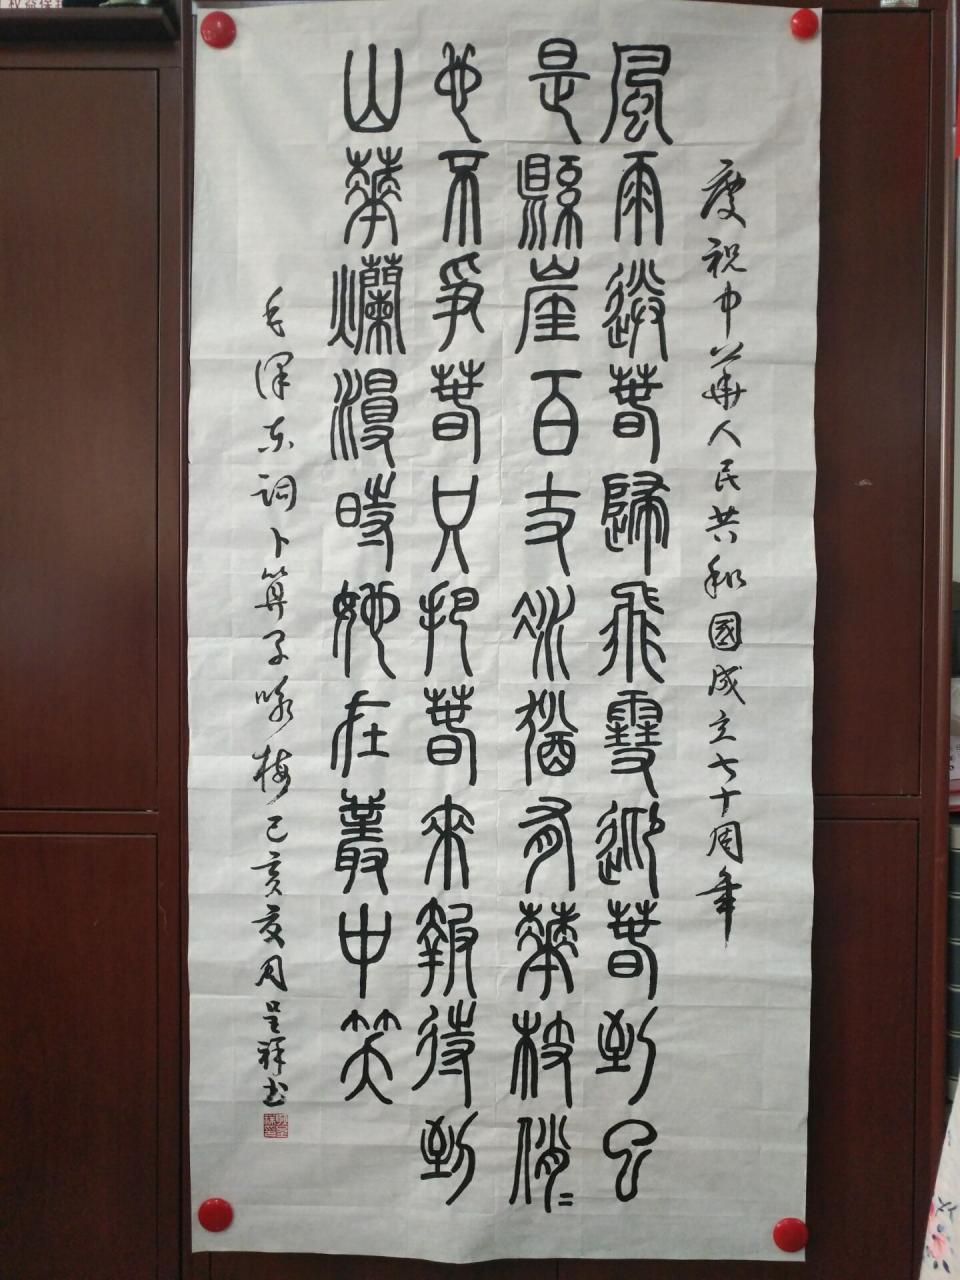 慶祝中華人民共和國成立七十周年
風雨送春歸飛雪迎春到已
是縣崖百丈冰猶有華枝俏〻
也不爭春只把春來報待到
山華爛漫時她在叢中笑
毛澤东詞卜算子咏梅己亥夏月呈祥书